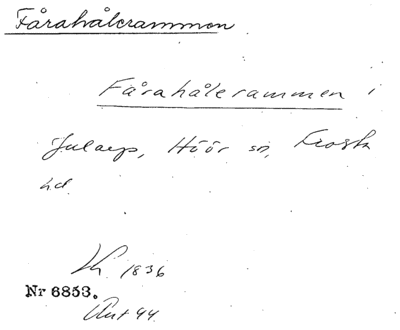 Fårahålerammen
Fårahålerammen i
Jularp, Höör sn, Frosta
hd
1836
Nr 6853.
Ant 44